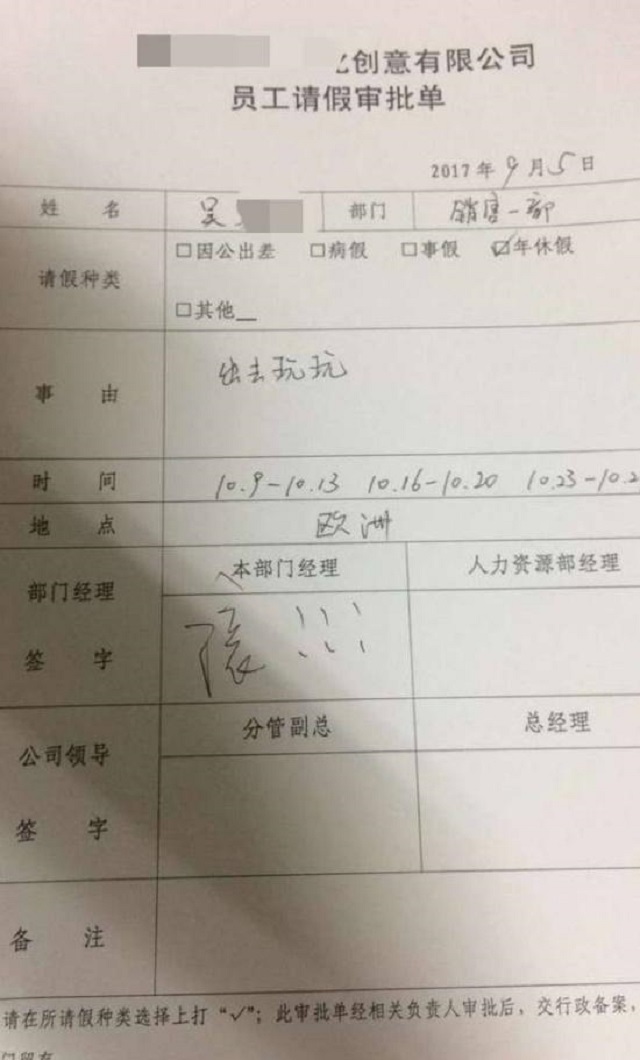 创意有限公司
员工请假审批单
2017年9月5日
姓 名 吴 部门 销售一部
请假种类 □因公出差 □病假 □事假 ☑年休假
□其他__
事 由 出去玩玩
时 间 10.9-10.13 10.16-10.20 10.23-10.2
地 点 欧洲
部门经理 本部门经理 人力资源部经理
签 字 滚!!!
公司领导 分管副总 总经理
签 字
备 注
请在所请假种类选择上打“√”;此审批单经相关负责人审批后,交行政备案,
门留存